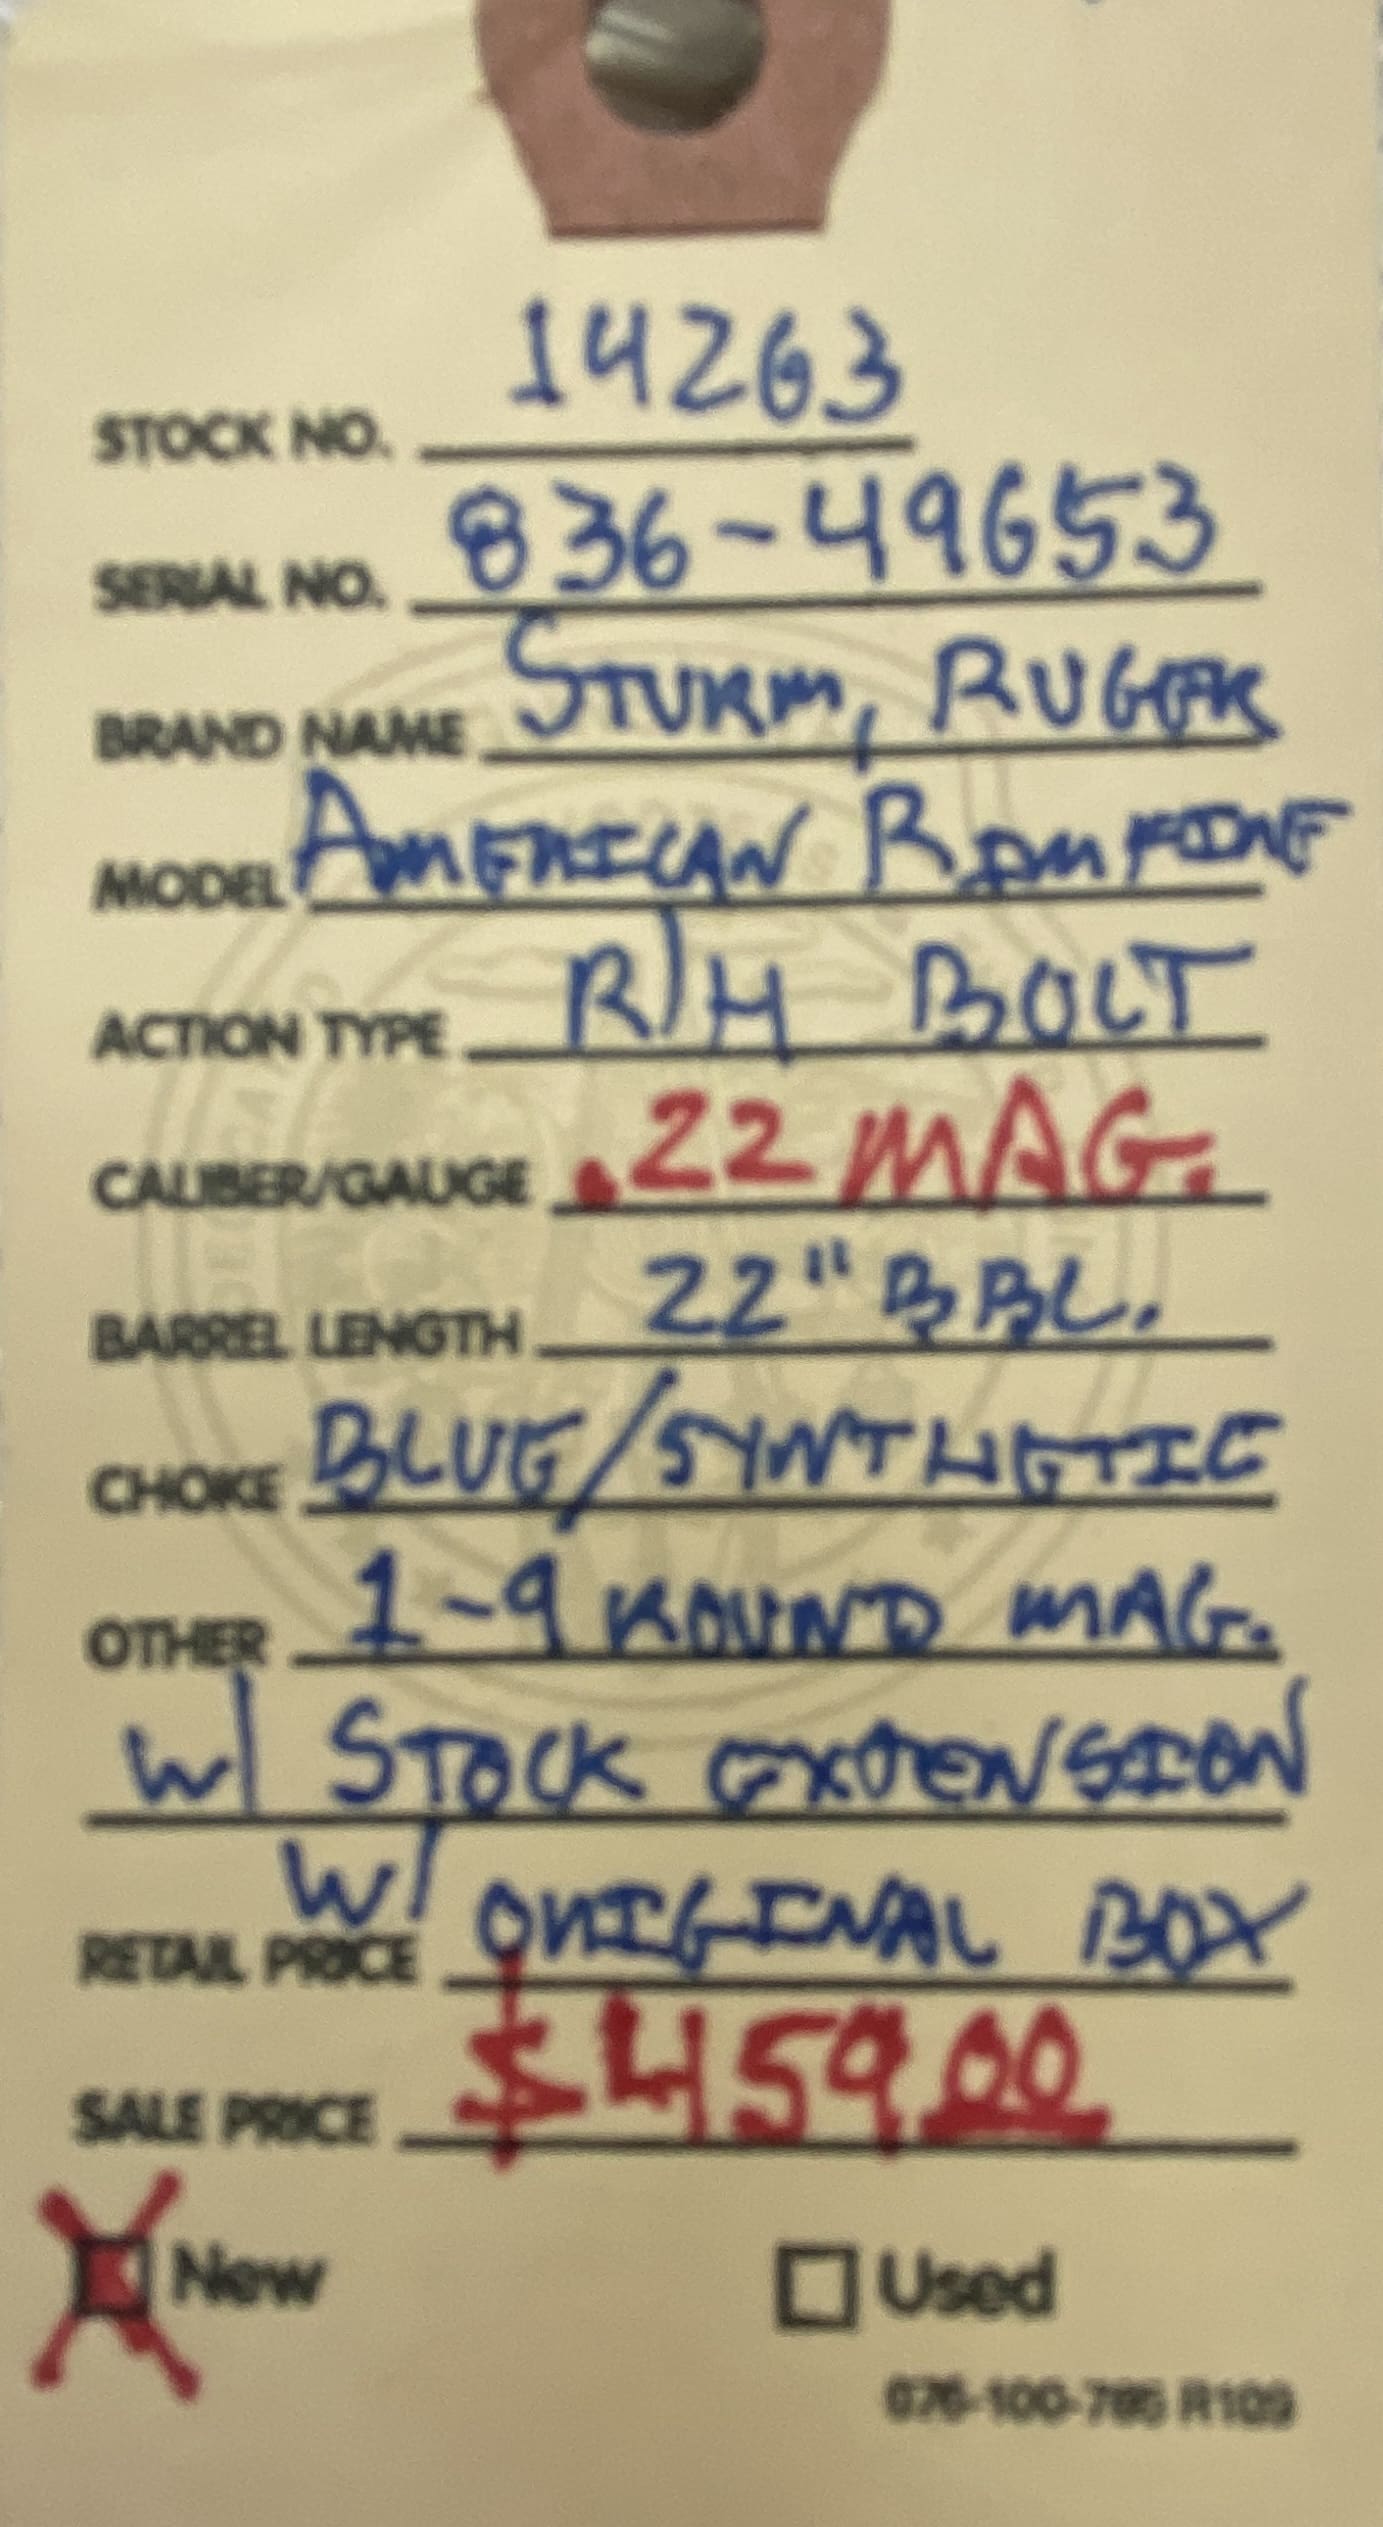 STOCK NO. 14263
SERIAL NO. 836-49653
BRAND NAME STURM, RUGER
MODEL AMERICAN RIMFIRE
ACTION TYPE R/H BOLT
CALIBER/GAUGE .22 MAG.
BARREL LENGTH 22" BBL.
CHOKE BLUE/SYNTHETIC
OTHER 1-9 ROUND MAG.
w/ STOCK EXTENSION
w/ ORIGINAL BOX
RETAIL PRICE
SALE PRICE $459.00
New Used
076-100-785 R109